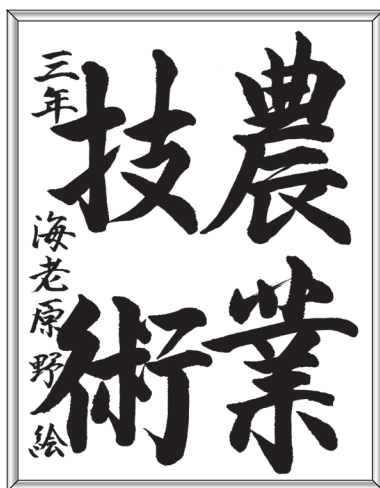 農業
技術
三年 海老原野絵